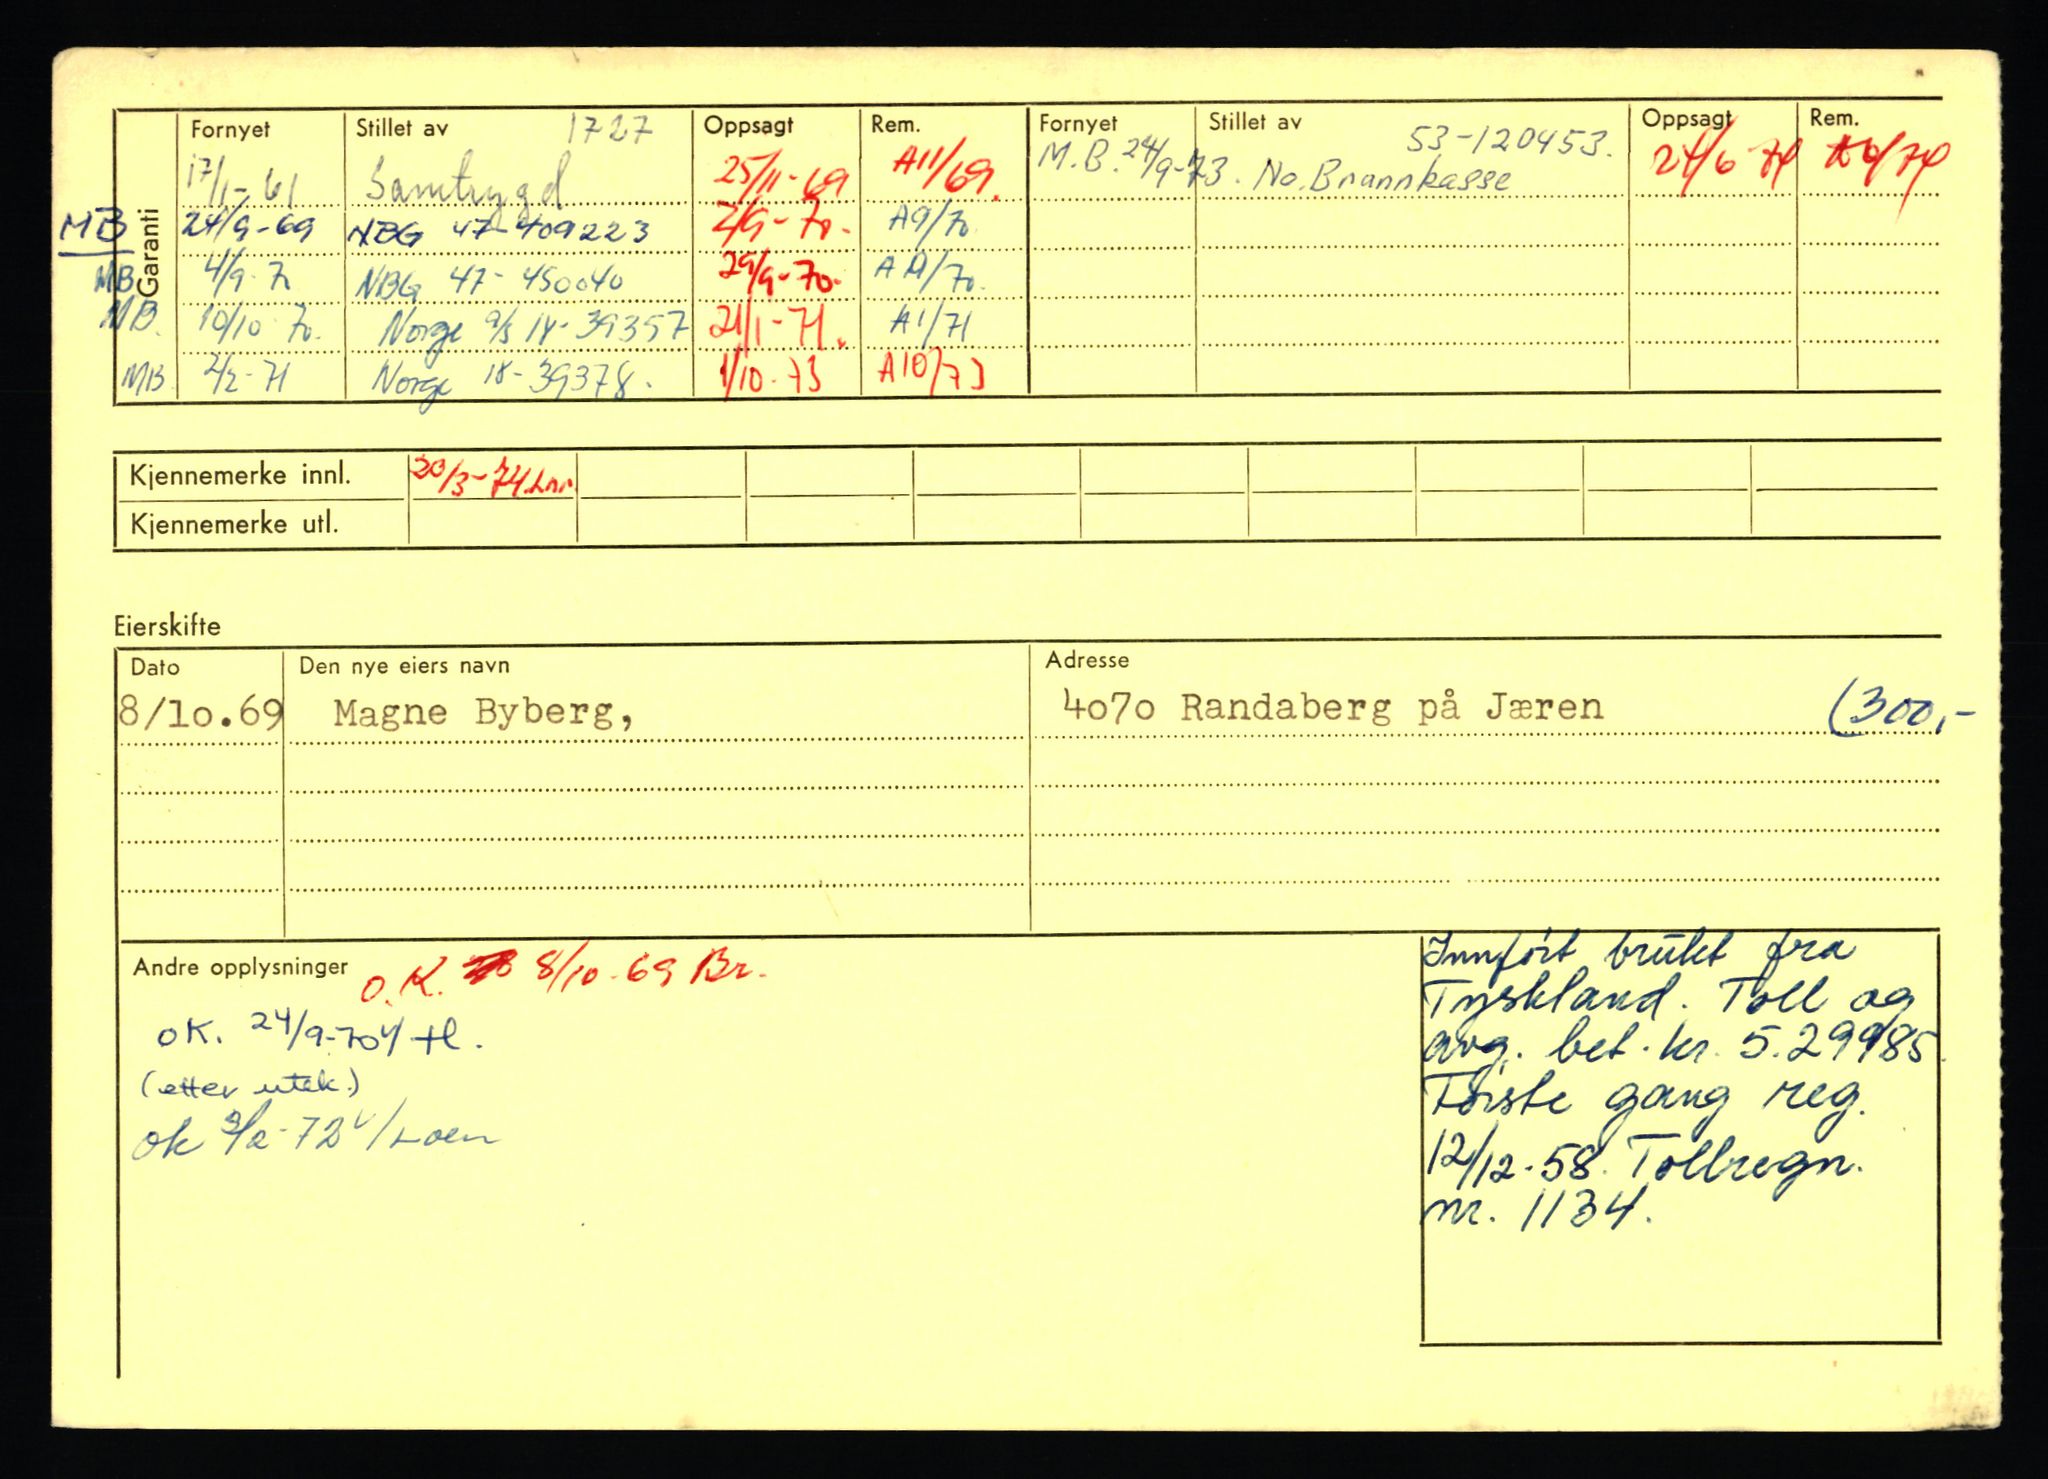 Fornyet Stillet av 1727 Oppsagt Rem. Fornyet Stillet av 53-120453. Oppsagt Rem.
17/1-61 Samtrygd 25/11-69 A11/69. M.B. 24/9-73. No. Brannkasse 24/6 74 A6/74
Garanti
MB 24/9-69 NBG 47-409223 2/9-70. A9/70
MB 4/9-70 NBG 47-450040 29/9-70. A11/70.
MB. 10/10 70. Norge a/s 18-39357 21/1-71. A1/71
MB. 2/2-71 Norge 18-39378. 1/10-73 A10/73
Kjennemerke innl. 20/3-74
Kjennemerke utl.
Eierskifte
Dato Den nye eiers navn Adresse
8/10.69 Magne Byberg, 4070 Randaberg på Jæren (300,-
Andre opplysninger O.K. 8/10-69 Br.
OK. 24/9-70
(etter utek.)
ok 3/2-72
Innført brukt fra
Tyskland. Toll og
avg. bet. kr. 5.299185
Første gang reg.
12/12-58. Tollregn.
nr. 1134.